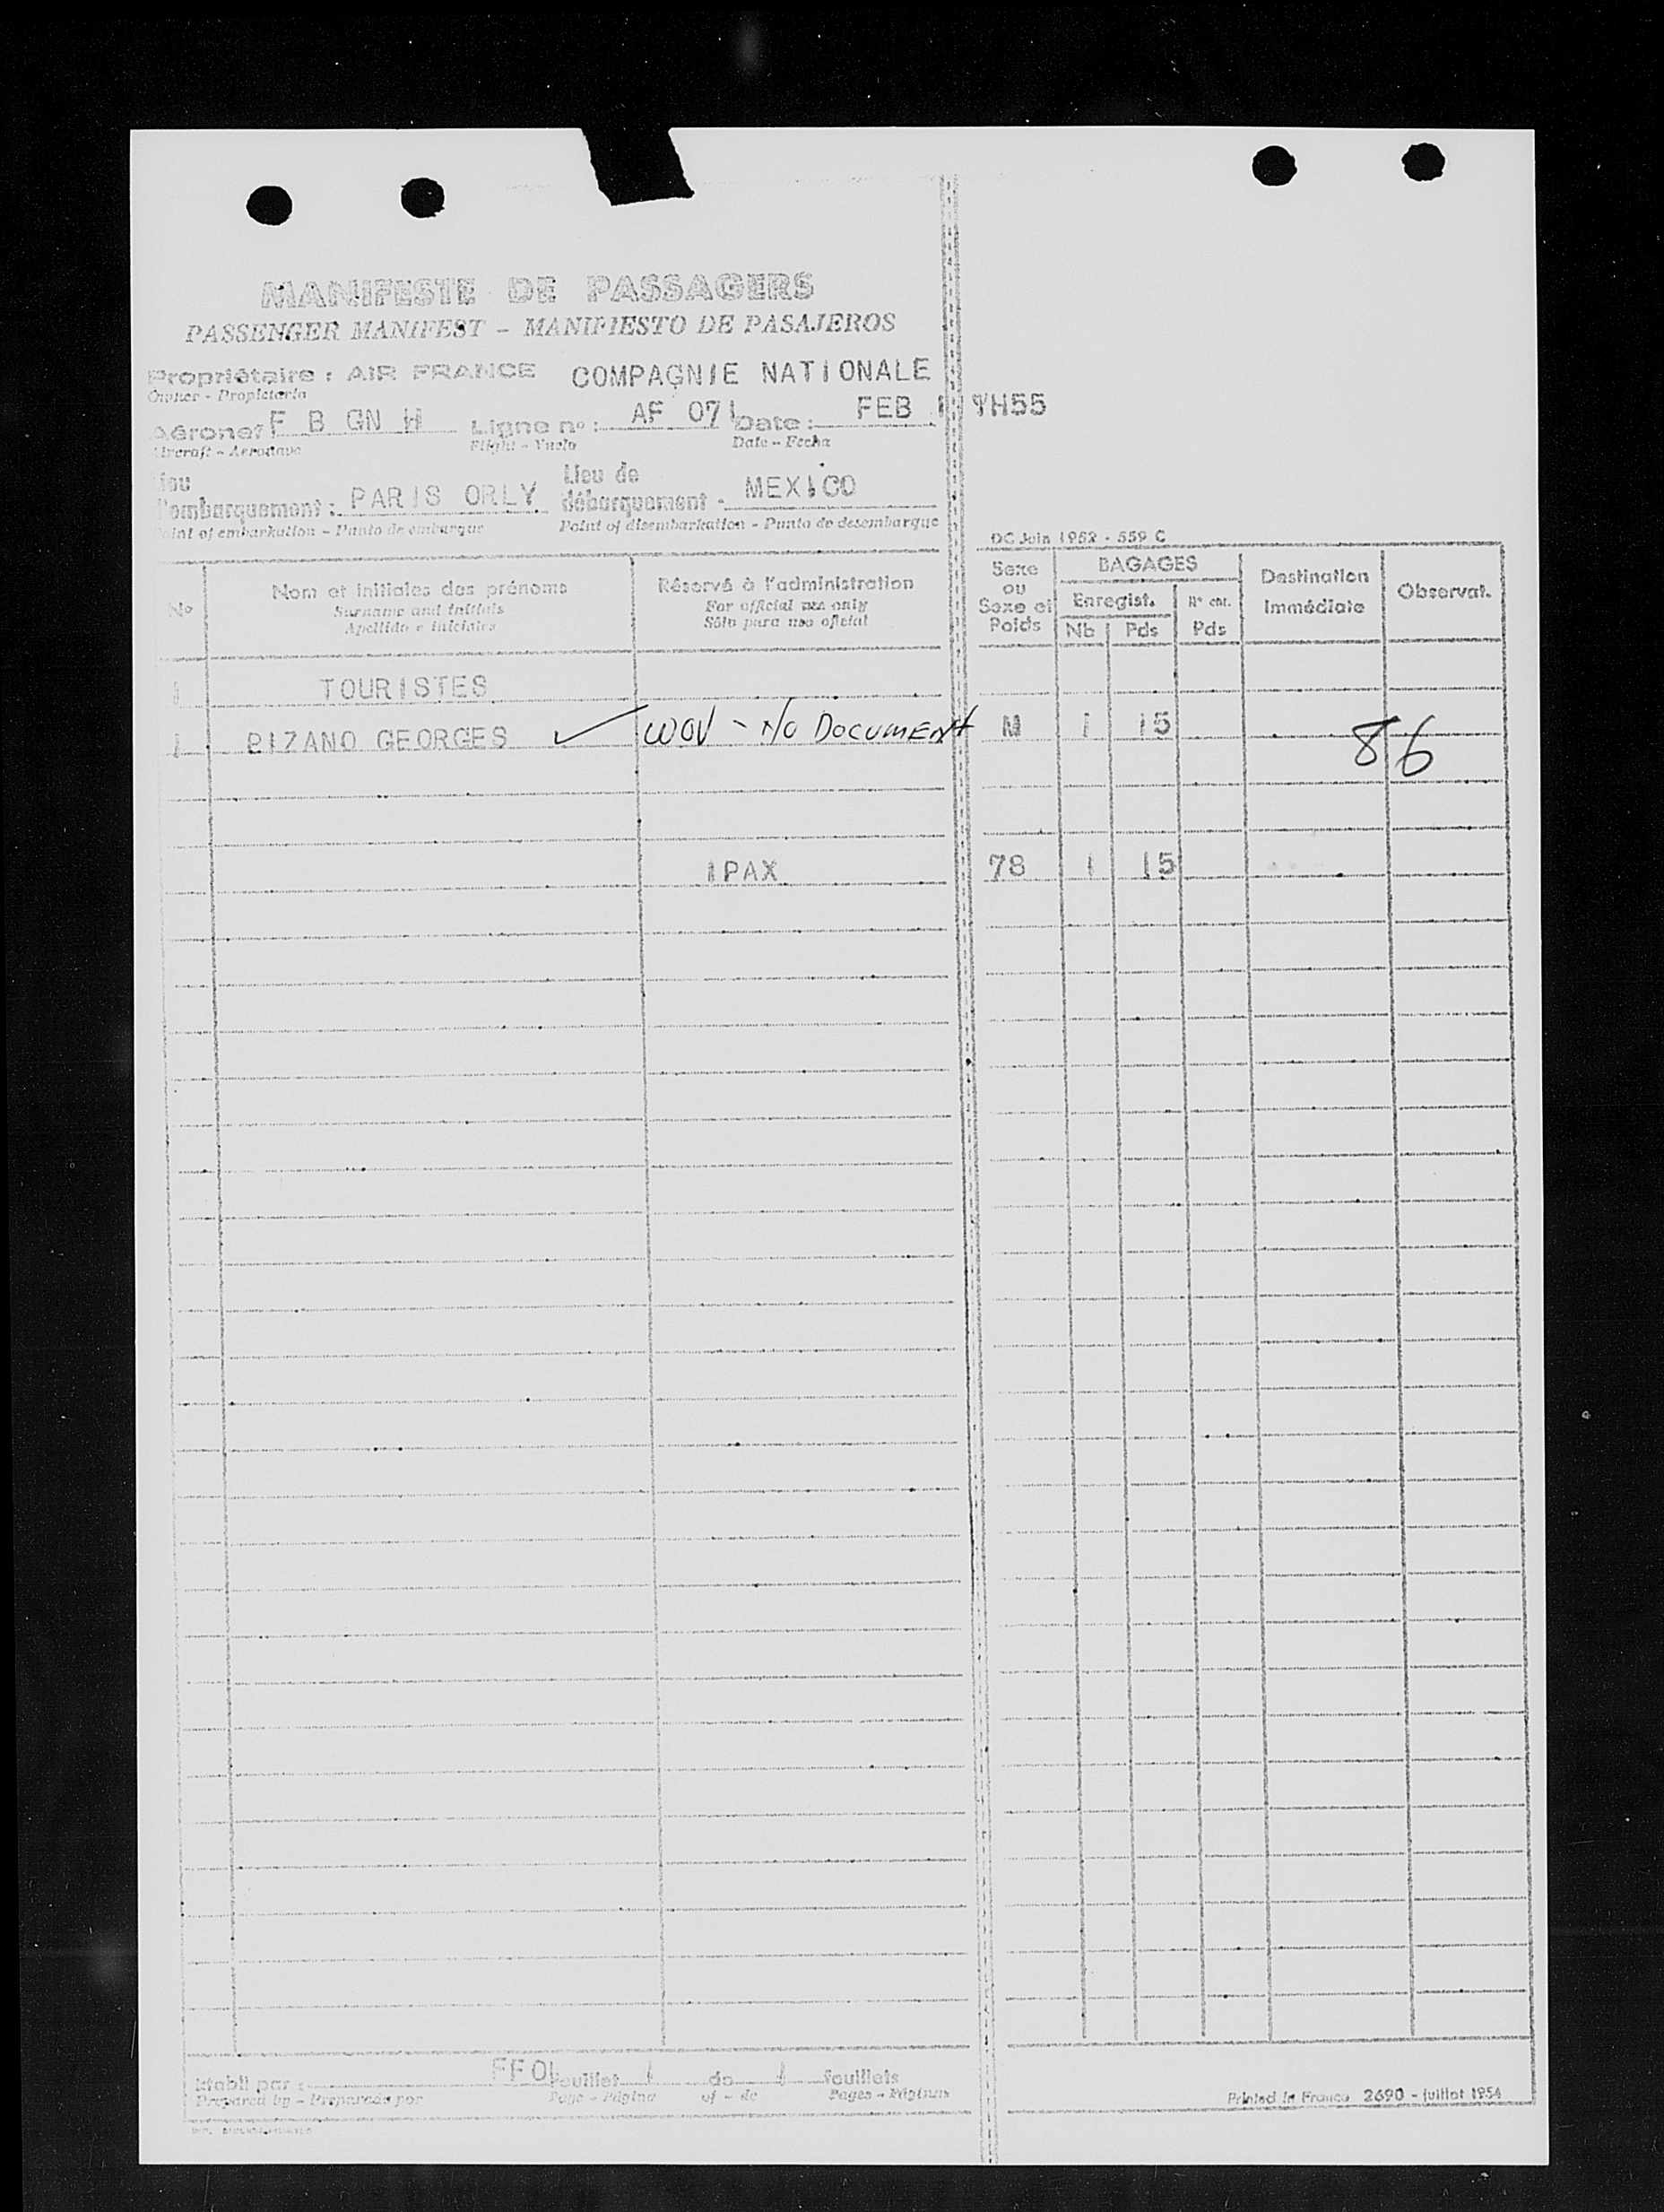 MANIFESTE DE PASSAGERS
PASSENGER MANIFEST - MANIFIESTO DE PASAJEROS
Propriétaire : AIR FRANCE COMPAGNIE NATIONALE
Owner - Propietario
Aéronef F B GN H Ligne nº : AF 071 Date : FEB 1 TH55
Aircraft - Aeronave Flight - Vuelo Date - Fecha
Lieu d'embarquement : PARIS ORLY Lieu de débarquement - MEXICO
Point of embarkation - Punto de embarque Point of disembarkation - Punto de desembarque
DC Juin 1952 - 559 C
No
Nom et initiales des prénoms
Surname and initials
Apellido e iniciales
Réservé à l'administration
For official use only
Sólo para uso oficial
Sexe
ou
Sexe et
Poids
BAGAGES
Enregist.
Nb Pds
Nº enr.
Pds
Destination
Immédiate
Observat.
1 TOURISTES
1 PIZANO GEORGES ✓ WOV - NO DOCUMENT M 1 15 86
1PAX 78 1 15
Etabli par : FFO Feuillet 1 de 1 feuillets
Prepared by - Preparado por Page - Página of - de Pages - Páginas
Printed in France 2690 - juillet 1954